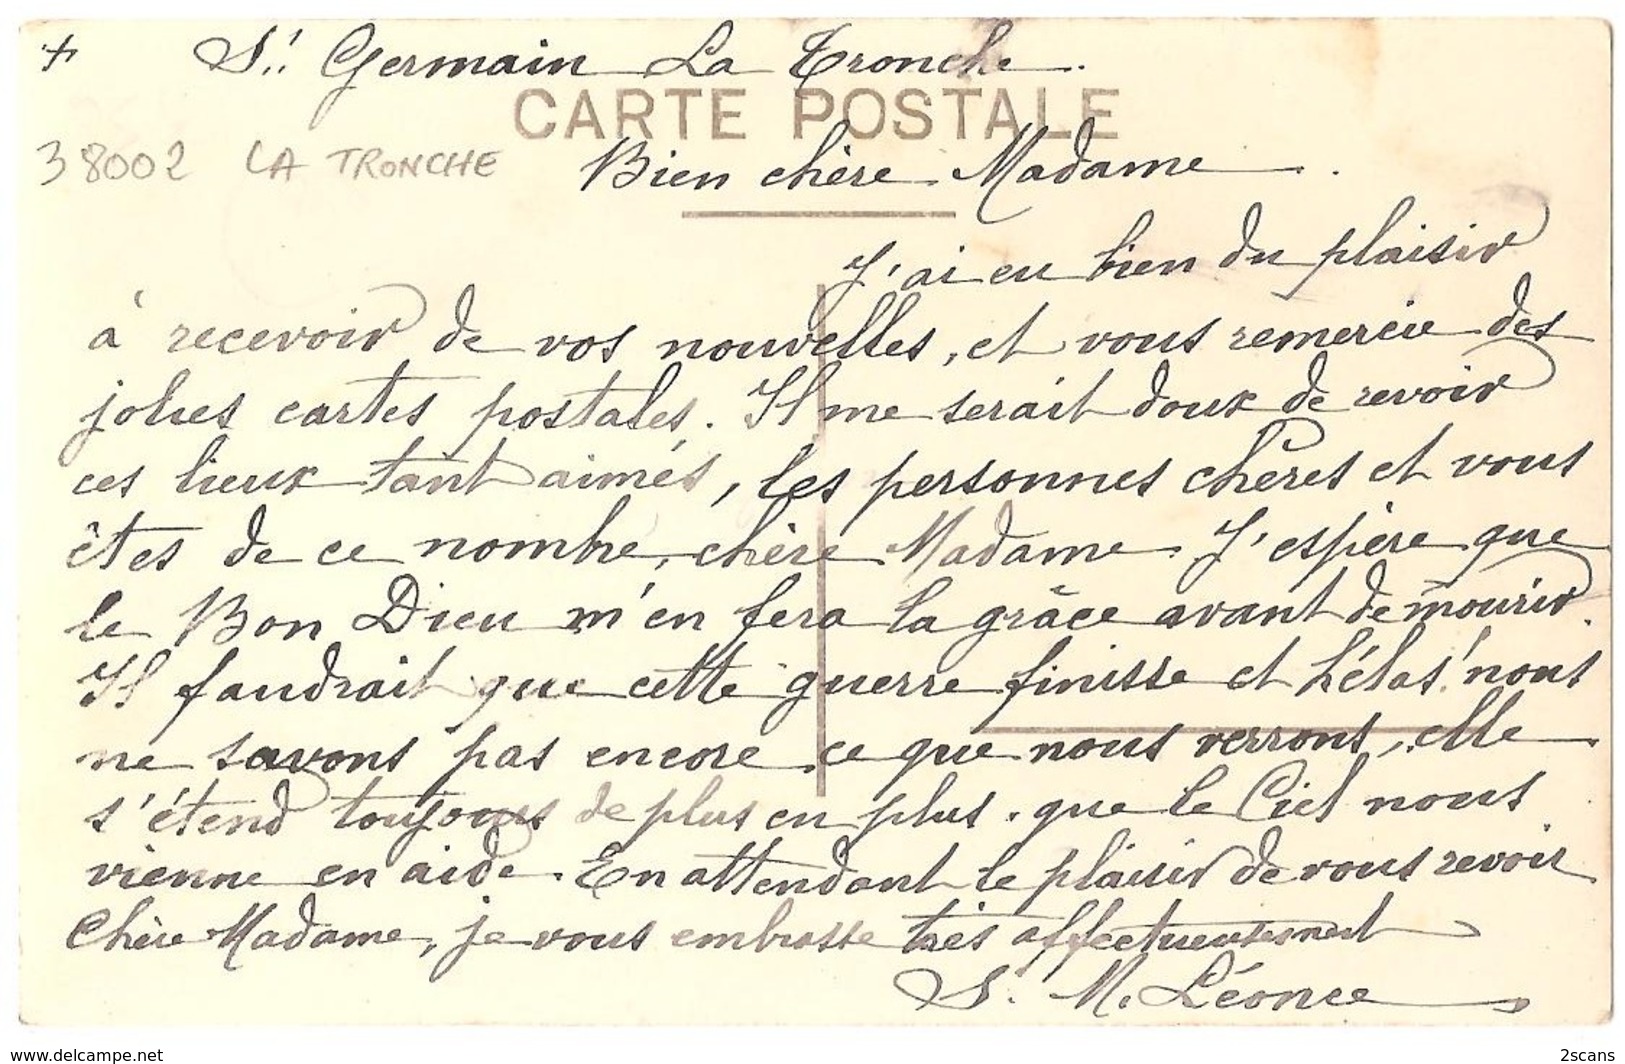 + St Germain La Tronche.
CARTE POSTALE
38002 LA TRONCHE
Bien chère Madame.
J'ai eu bien du plaisir
à recevoir de vos nouvelles, et vous remercie des
jolies cartes postales. Il me serait doux de revoir
ces lieux tant aimés, les personnes chères et vous
êtes de ce nombre, chère Madame. J'espère que
le Bon Dieu m'en fera la grâce avant de mourir.
Il faudrait que cette guerre finisse et hélas! nous
ne savons pas encore ce que nous verrons, elle
s'étend toujours de plus en plus. que le Ciel nous
vienne en aide. En attendant le plaisir de vous revoir
Chère Madame, je vous embrasse très affectueusement
S. M. Léonce
www.delcampe.net
2scans